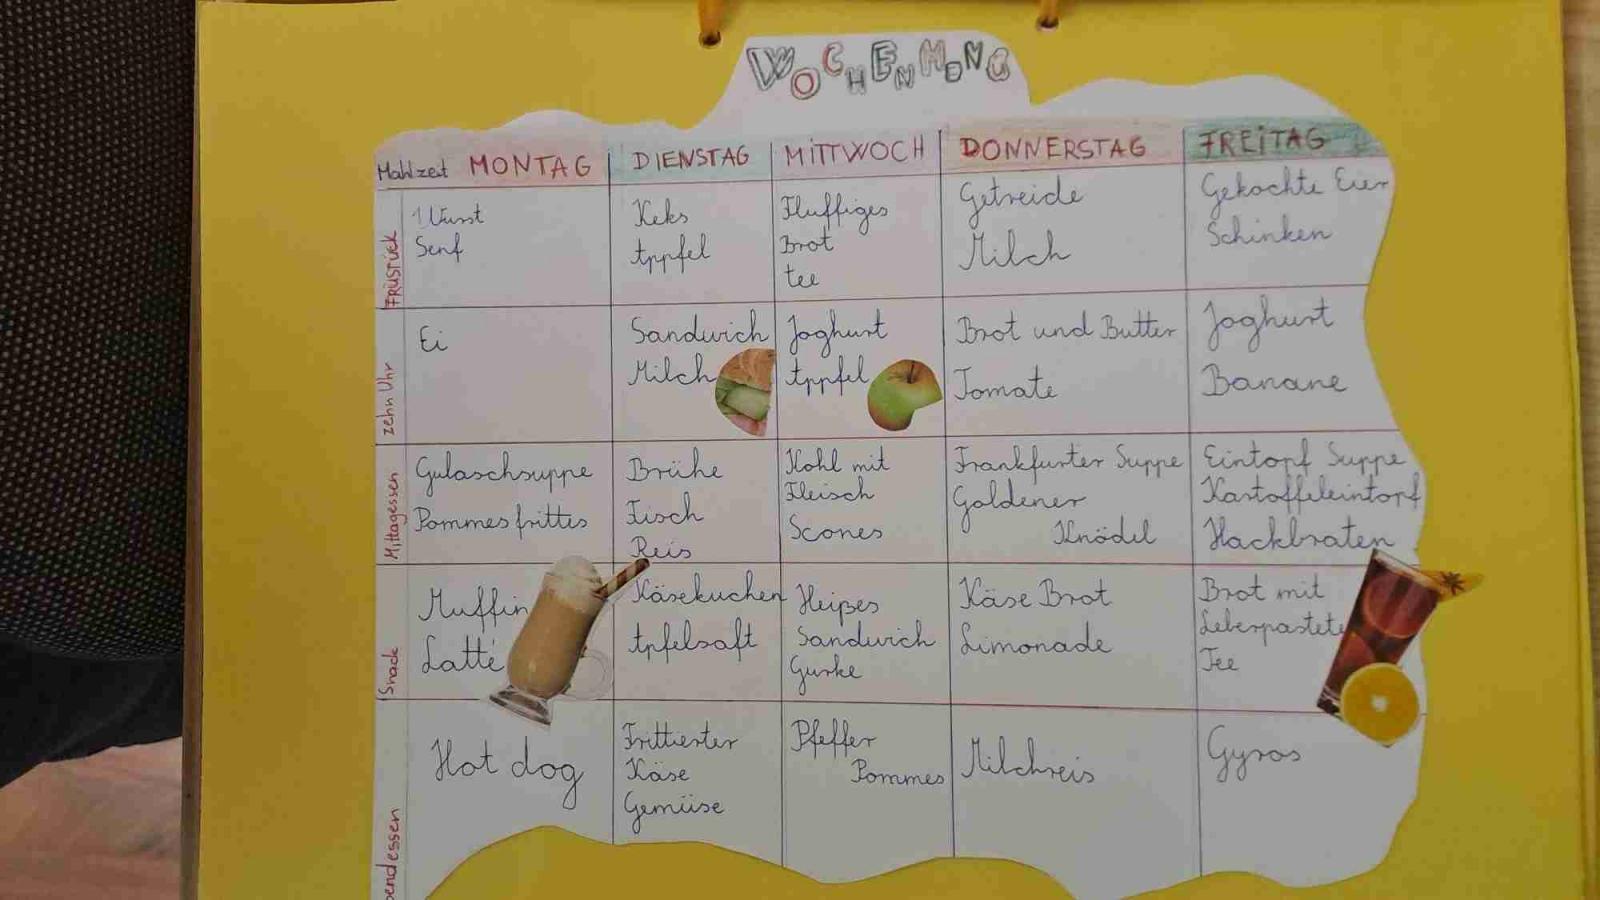 WOCHENMENÜ
Mahlzeit MONTAG DIENSTAG MITTWOCH DONNERSTAG FREITAG
FRÜSTÜCK
1 Wurst
Senf
Keks
Appfel
Fluffiges
Brot
tee
Getreide
Milch
Gekochte Eier
Schinken
zehn Uhr
Ei
Sandwich
Milch
Joghurt
Appfel
Brot und Butter
Tomate
Joghurt
Banane
Mittagessen
Gulaschsuppe
Pommes frittes
Brühe
Fisch
Reis
Kohl mit
Fleisch
Scones
Frankfurter Suppe
Goldener
Knödel
Eintopf Suppe
Kartoffeleintopf
Hackbraten
Snack
Muffin
Latté
Käsekuchen
Apfelsaft
Heißes
Sandwich
Gurke
Käse Brot
Limonade
Brot mit
Leberpastete
Tee
bendessen
Hot dog
Frittierter
Käse
Gemüse
Pfeffer
Pommes
Milchreis
Gyros